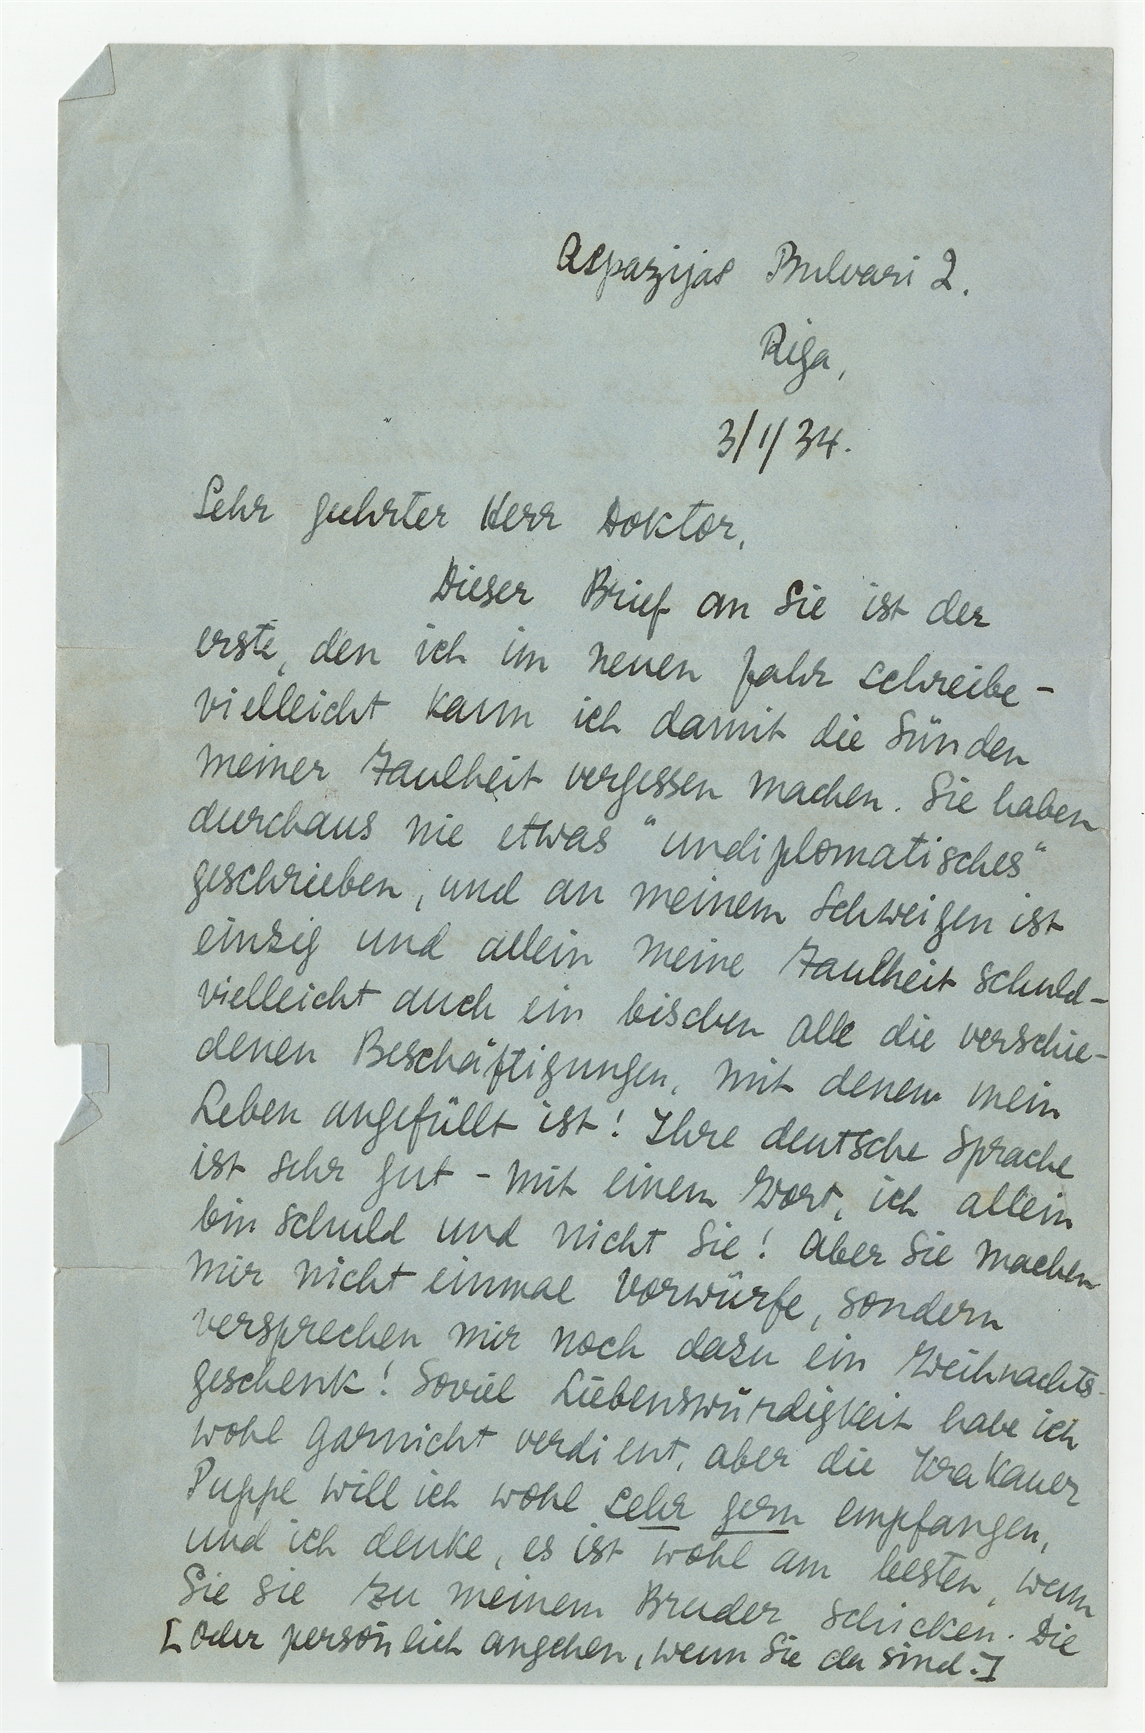 Aspazijas Bulvari 2.
Riga,
3/1/34.
Sehr geehrter Herr Doktor,
Dieser Brief an Sie ist der
erste, den ich im neuen Jahr schreibe -
vielleicht kann ich damit die Sünden
meiner Faulheit vergessen machen. Sie haben
durchaus nie etwas "undiplomatisches"
geschrieben, und an meinem Schweigen ist
einzig und allein meine Faulheit schuld -
vielleicht auch ein bischen alle die verschie-
denen Beschäftigungen, mit denen mein
Leben angefüllt ist! Ihre deutsche Sprache
ist sehr gut - mit einem Wort, ich allein
bin schuld und nicht Sie! Aber Sie machen
mir nicht einmal Vorwürfe, sondern
versprechen mir noch dazu ein Weihnachts-
geschenk! Soviel Liebenswürdigkeit habe ich
wohl garnicht verdient, aber die Krakauer
Puppe will ich wohl sehr gern empfangen,
und ich denke, es ist wohl am besten, wenn
Sie sie zu meinem Bruder schicken. Die
[oder persönlich angehen, wenn Sie da sind.]